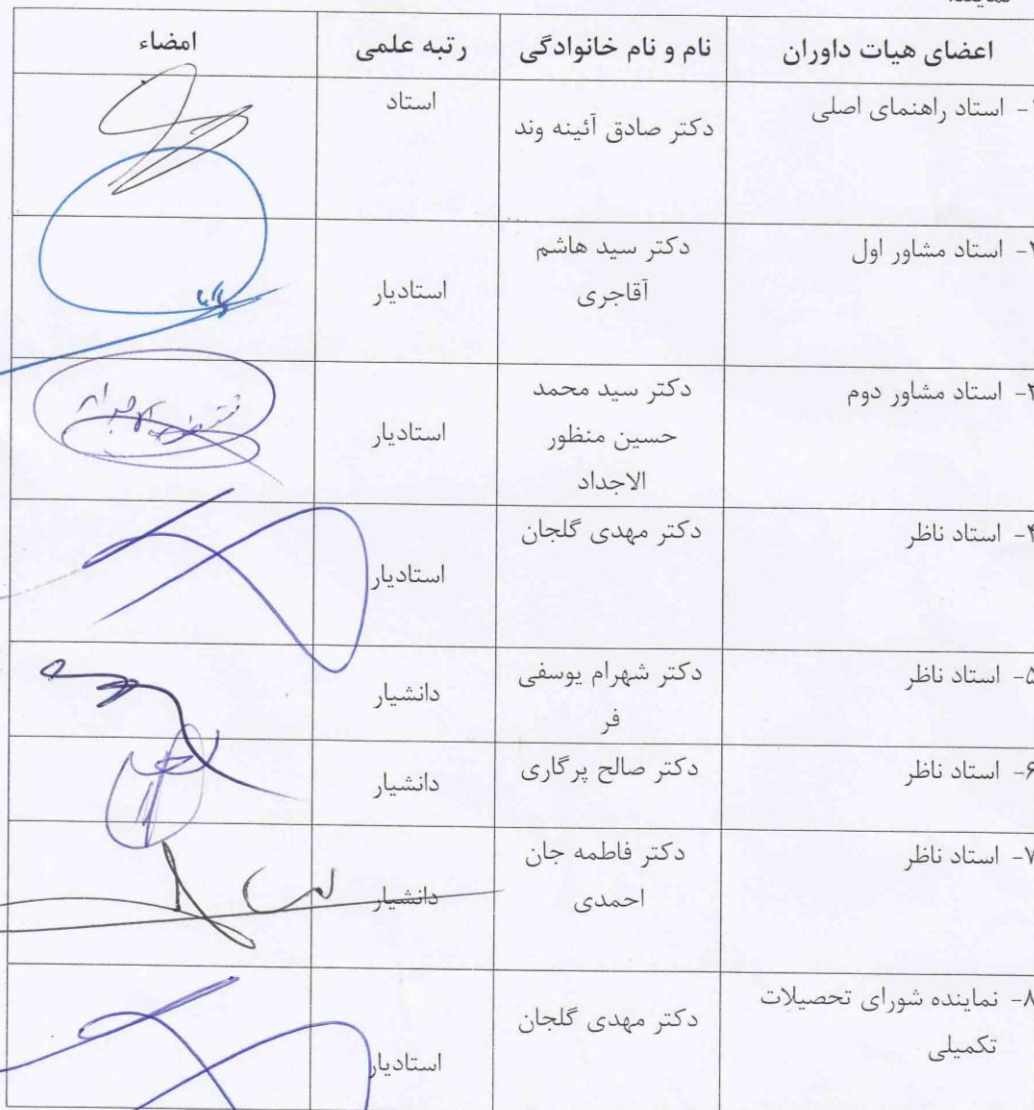 نمایند.
اعضای هیات داوران نام و نام خانوادگی رتبه علمی امضاء
۱- استاد راهنمای اصلی دکتر صادق آئینه وند استاد
۲- استاد مشاور اول دکتر سید هاشم
آقاجری استادیار
۳- استاد مشاور دوم دکتر سید محمد
حسین منظور استادیار
الاجداد
۴- استاد ناظر دکتر مهدی گلجان استادیار
۵- استاد ناظر دکتر شهرام یوسفی دانشیار
فر
۶- استاد ناظر دکتر صالح پرگاری دانشیار
۷- استاد ناظر دکتر فاطمه جان
احمدی دانشیار
۸- نماینده شورای تحصیلات دکتر مهدی گلجان
تکمیلی استادیار